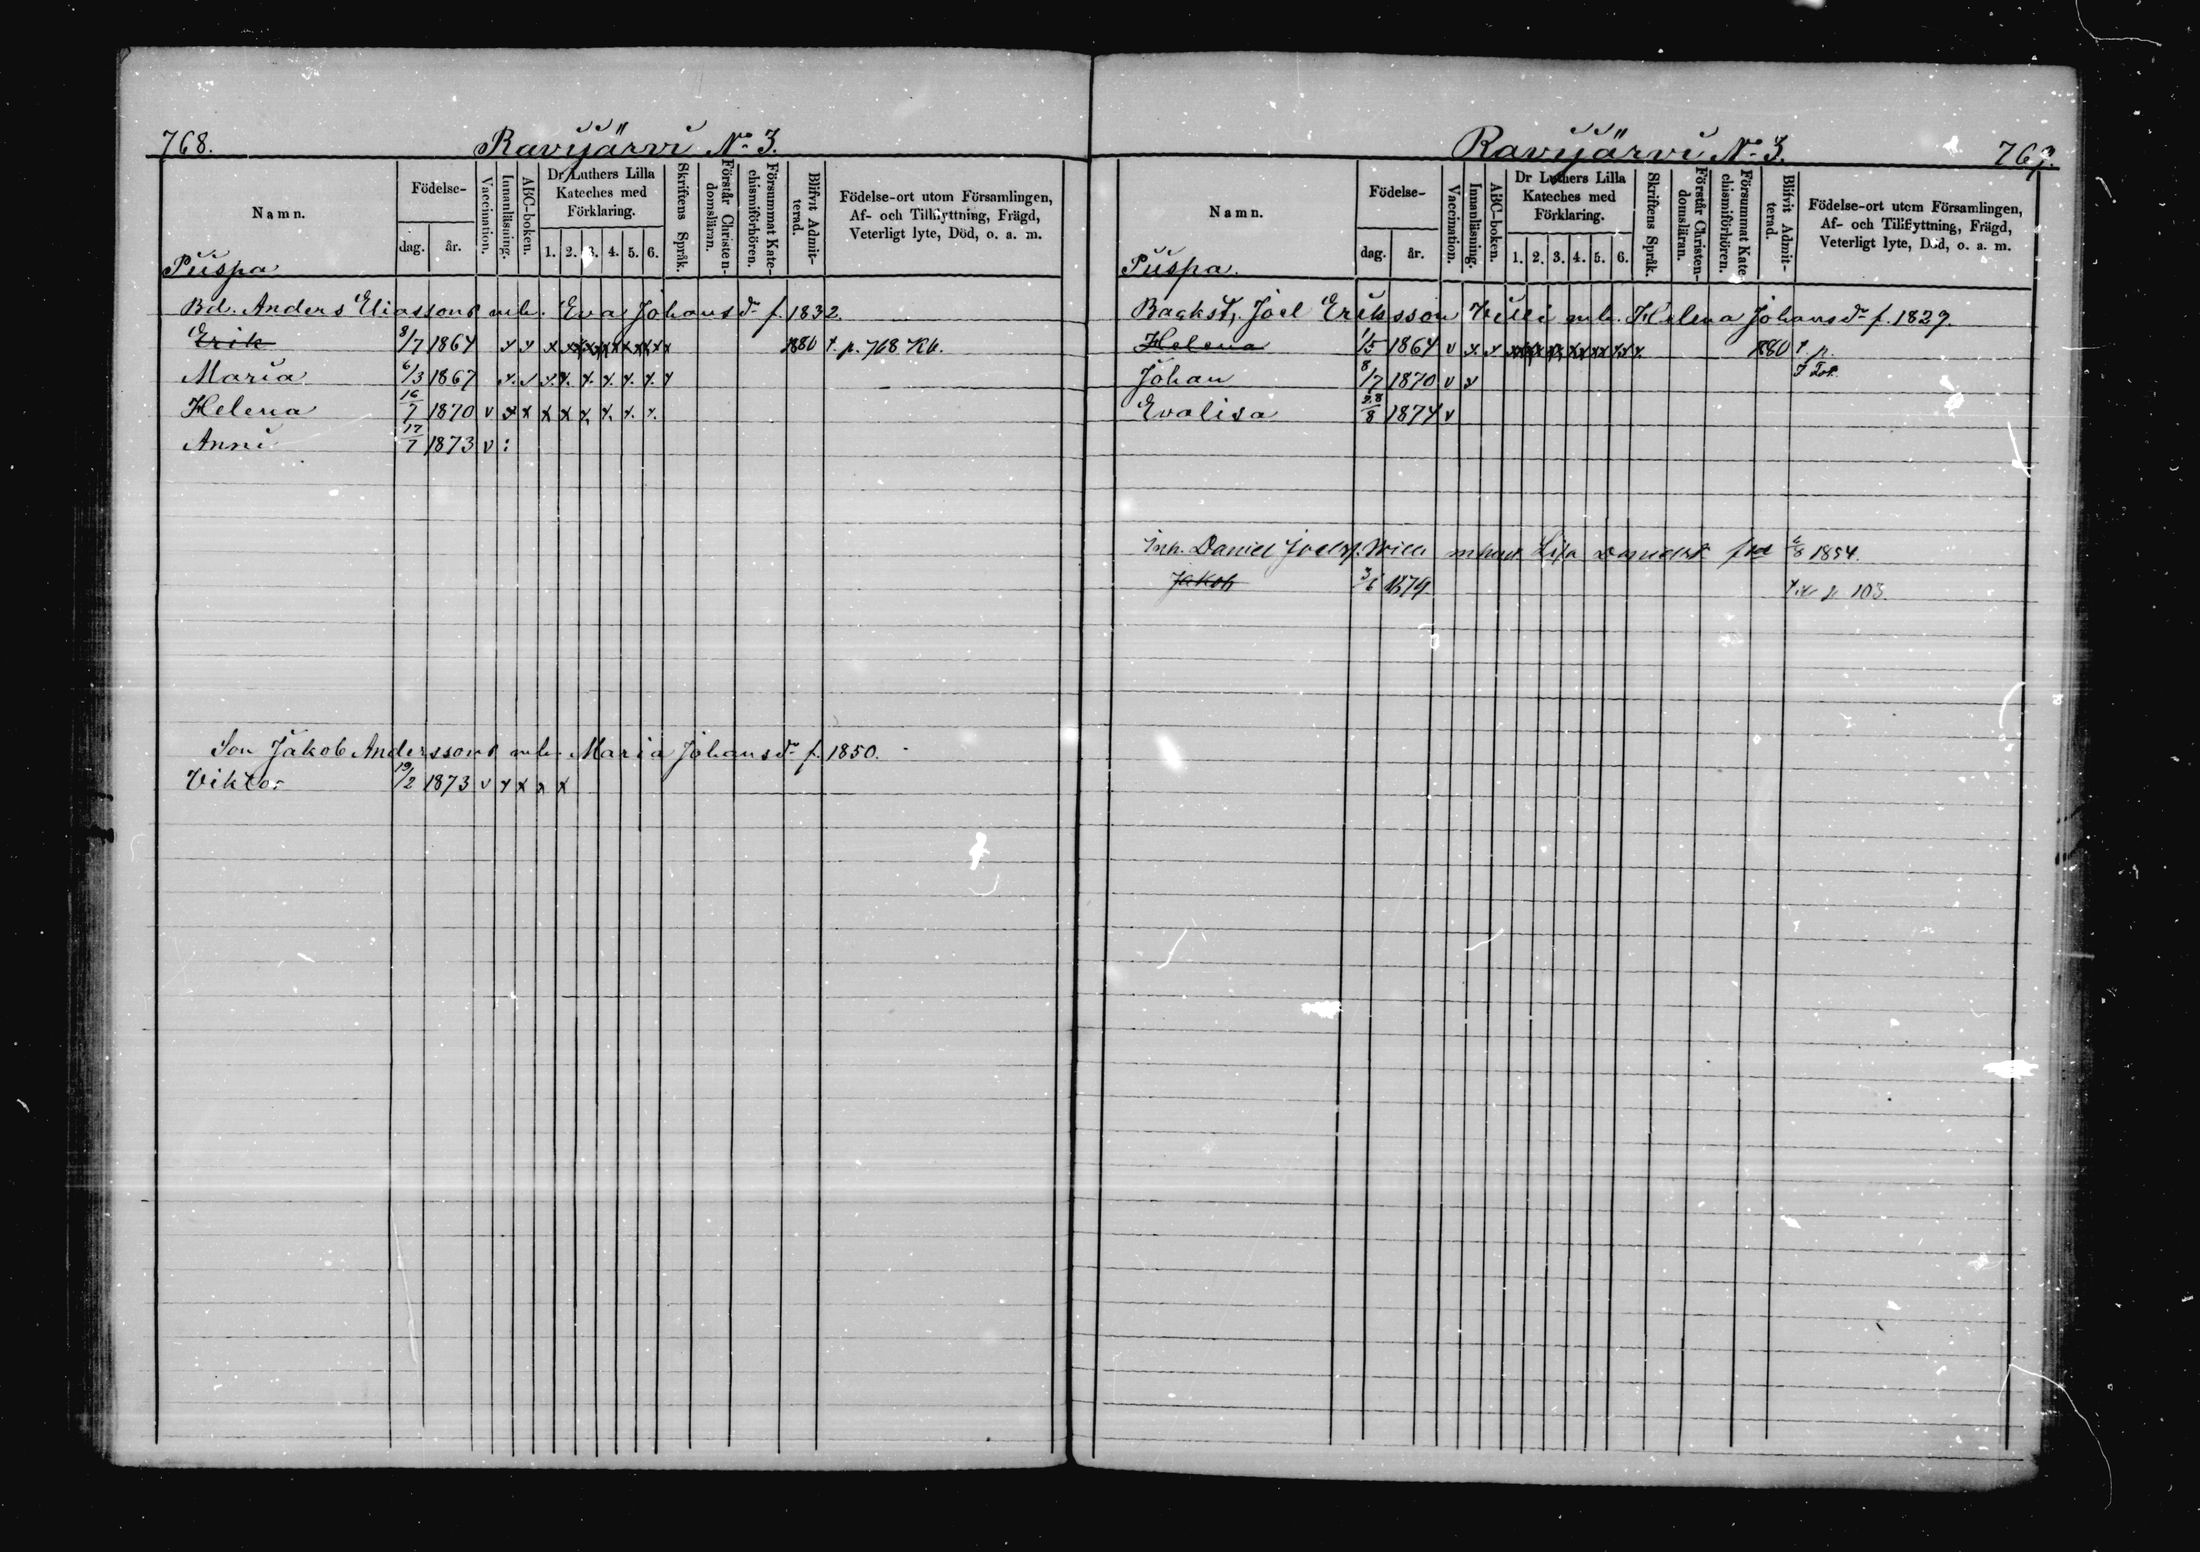 768.
Ravijärvi No 3.
Namn.
Födelse-
dag.
år.
Vaccination.
Innanläsning.
ABC-boken.
Dr Luthers Lilla
Kateches med
Förklaring.
1. 2. 3. 4. 5. 6.
Skriftens Språk.
Förstår Christen-
domsläran.
Försummat Kate-
chismiförhören.
Blifvit Admit-
terad.
Födelse-ort utom Församlingen,
Af- och Tillflyttning, Frägd,
Veterligt lyte, Död, o. a. m.
Piispa
Bd. Anders Eliassons m.h. Eva Johansdr f. 1832.
Erik 8/7 1864 x x x x x x x x x x x x 1880 t. p. 768 Kb.
Maria 6/3 1867 x. x x. x. x. x. x. x. x
Helena 16/7 1870 v x x x x x x. x. x.
Anni 17/7 1873 v :
Son Jakob Anderssons m.h. Maria Johansdr f. 1850.
Viktor 19/2 1873 v x x x x
Ravijärvi No 3.
Namn.
Födelse-
dag.
år.
Vaccination.
Innanläsning.
ABC-boken.
Dr Luthers Lilla
Kateches med
Förklaring.
1. 2. 3. 4. 5. 6.
Skriftens Språk.
Förstår Christen-
domsläran.
Försummat Kate
chismiförhören.
Blifvit Admit-
terad.
Födelse-ort utom Församlingen,
Af- och Tillflyttning, Frägd,
Veterligt lyte, Död, o. a. m.
Piispa.
Backst. Joel Eriksson m.h. Helena Johansdr f. 1829.
Helena 1/5 1864 v x x x x x x x x x 1880 t p.
Johan 8/7 1870 v x
Evalisa 28/8 1874 v
Inh. Daniel m hust Lisa 1854.
Jakob 3/6 1879 p. 103.